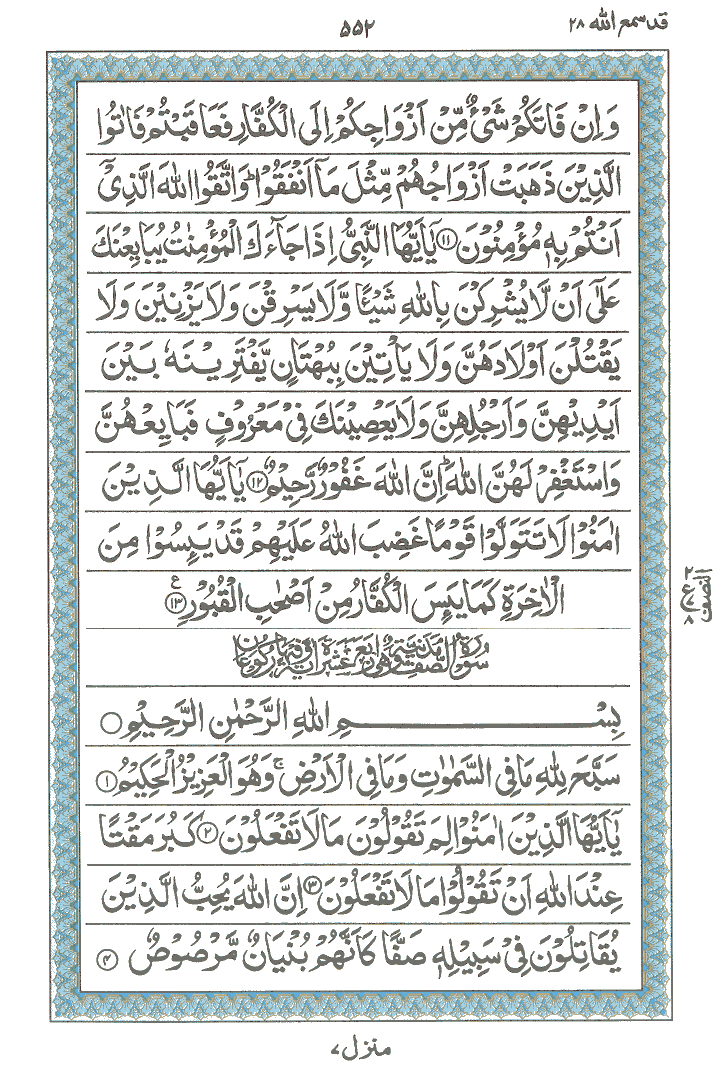 قد سمع الله ۲۸
۵۵۲
وَ اِنْ فَاتَكُمْ شَیْءٌ مِّنْ اَزْوَاجِكُمْ اِلَى الْكُفَّارِ فَعَاقَبْتُمْ فَاٰتُوا
الَّذِیْنَ ذَهَبَتْ اَزْوَاجُهُمْ مِّثْلَ مَاۤ اَنْفَقُوْا ؕ وَ اتَّقُوا اللّٰهَ الَّذِیْۤ
اَنْتُمْ بِهٖ مُؤْمِنُوْنَ ۱۱ یٰۤاَیُّهَا النَّبِیُّ اِذَا جَآءَكَ الْمُؤْمِنٰتُ یُبَایِعْنَكَ
عَلٰۤى اَنْ لَّا یُشْرِكْنَ بِاللّٰهِ شَیْـًٔا وَّ لَا یَسْرِقْنَ وَ لَا یَزْنِیْنَ وَ لَا
یَقْتُلْنَ اَوْلَادَهُنَّ وَ لَا یَاْتِیْنَ بِبُهْتَانٍ یَّفْتَرِیْنَهٗ بَیْنَ
اَیْدِیْهِنَّ وَ اَرْجُلِهِنَّ وَ لَا یَعْصِیْنَكَ فِیْ مَعْرُوْفٍ فَبَایِعْهُنَّ
وَ اسْتَغْفِرْ لَهُنَّ اللّٰهَ ؕ اِنَّ اللّٰهَ غَفُوْرٌ رَّحِیْمٌ ۱۲ یٰۤاَیُّهَا الَّذِیْنَ
اٰمَنُوْا لَا تَتَوَلَّوْا قَوْمًا غَضِبَ اللّٰهُ عَلَیْهِمْ قَدْ یَىِٕسُوْا مِنَ
الْاٰخِرَةِ كَمَا یَىِٕسَ الْكُفَّارُ مِنْ اَصْحٰبِ الْقُبُوْرِ ۱۳ ع
ع ۲ ۷ ۸ النصف
سُوْرَةُ الصَّفِّ مَدَنِیَّةٌ وَّ هِیَ اَرْبَعَ عَشْرَةَ اٰیَةً وَّ فِیْهَا رُكُوْعَانِ
بِسْمِ اللّٰهِ الرَّحْمٰنِ الرَّحِیْمِ
سَبَّحَ لِلّٰهِ مَا فِی السَّمٰوٰتِ وَ مَا فِی الْاَرْضِ ۚ وَ هُوَ الْعَزِیْزُ الْحَكِیْمُ ۱
یٰۤاَیُّهَا الَّذِیْنَ اٰمَنُوْا لِمَ تَقُوْلُوْنَ مَا لَا تَفْعَلُوْنَ ۲ كَبُرَ مَقْتًا
عِنْدَ اللّٰهِ اَنْ تَقُوْلُوْا مَا لَا تَفْعَلُوْنَ ۳ اِنَّ اللّٰهَ یُحِبُّ الَّذِیْنَ
یُقَاتِلُوْنَ فِیْ سَبِیْلِهٖ صَفًّا كَاَنَّهُمْ بُنْیَانٌ مَّرْصُوْصٌ ۴
منزل ۷